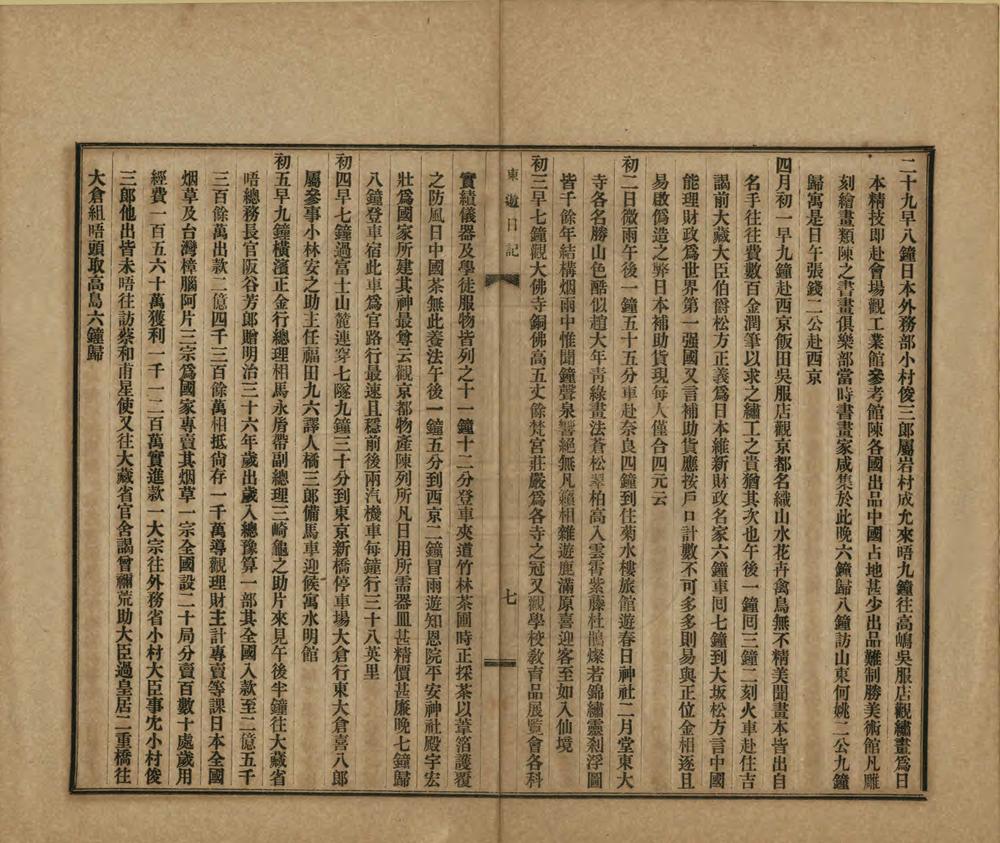 二十九早八鐘日本外務部小村俊三郎屬岩村成允來晤九鐘往高嶋吳服店觀繡畫爲日
本精技即赴會場觀工業館參考館陳各國出品中國占地甚少出品難制勝美術館凡雕
刻繪畫類陳之書畫俱樂部當時書畫家咸集於此晚六鐘歸八鐘訪山東何姚二公九鐘
歸寓是日午張錢二公赴西京
四月初一早九鐘赴西京飯田吳服店觀京都名織山水花卉禽鳥無不精美聞畫本皆出自
名手往往費數百金潤筆以求之繡工之貴猶其次也午後一鐘囘三鐘二刻火車赴住吉
謁前大藏大臣伯爵松方正義爲日本維新財政名家六鐘車囘七鐘到大坂松方言中國
能理財政爲世界第一强國又言補助貨應按戶口計數不可多多則易與正位金相逐且
易啟僞造之弊日本補助貨現每人僅合四元云
初二日微雨午後一鐘五十五分車赴奈良四鐘到住菊水樓旅館遊春日神社二月堂東大
寺各名勝山色酷似趙大年靑綠畫法蒼松翠柏高入雲霄紫藤杜鵑燦若錦繡靈刹浮圖
皆千餘年結構烟雨中惟聞鐘聲泉響絕無凡籟相雜遊鹿滿原喜迎客至如入仙境
初三早七鐘觀大佛寺銅佛高五丈餘梵宮莊嚴爲各寺之冠又觀學校敎育品展覽會各科
東遊日記
七
實績儀器及學徒服物皆列之十一鐘十二分登車夾道竹林茶圃時正採茶以葦箔護覆
之防風日中國茶無此養法午後一鐘五分到西京二鐘冒雨遊知恩院平安神社殿宇宏
壯爲國家所建其神最尊云觀京都物產陳列所凡日用所需器皿甚精價甚廉晚七鐘歸
八鐘登車宿此車爲官路行最速且穩前後兩汽機車每鐘行三十八英里
初四早七鐘過富士山麓連穿七隧九鐘三十分到東京新橋停車場大倉行東大倉喜八郎
屬參事小林安之助主任福田九六譯人橋三郎備馬車迎候寓水明館
初五早九鐘橫濱正金行總理相馬永胤帶副總理三崎龜之助片來見午後半鐘往大藏省
晤總務長官阪谷芳郎贈明治三十六年歲出歲入總豫算一部其全國入款至二億五千
三百餘萬出款二億四千三百餘萬相抵尙存一千萬導觀理財主計專賣等課日本全國
烟草及台灣樟腦阿片三宗爲國家專賣其烟草一宗全國設二十局分賣百數十處歲用
經費一百五六十萬獲利一千一二百萬實進款一大宗往外務省小村大臣事冗小村俊
三郎他出皆未晤往訪蔡和甫星使又往大藏省官舍謁曾禰荒助大臣過皇居二重橋往
大倉組晤頭取高島六鐘歸